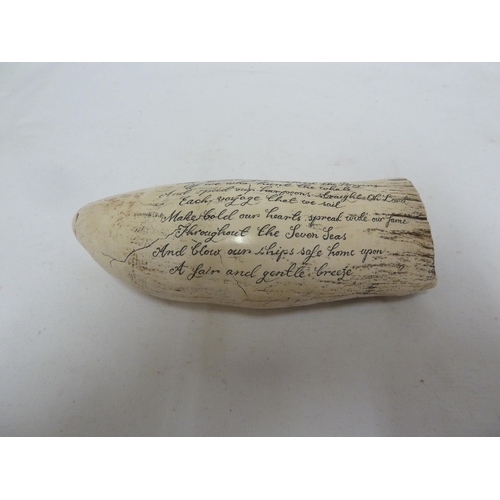 And speed our harpoons straight Oh Lord
Each voyage that we sail
Make bold our hearts spread wide our fame
Throughout the Seven Seas
And blow our ships safe home upon
A fair and gentle breeze